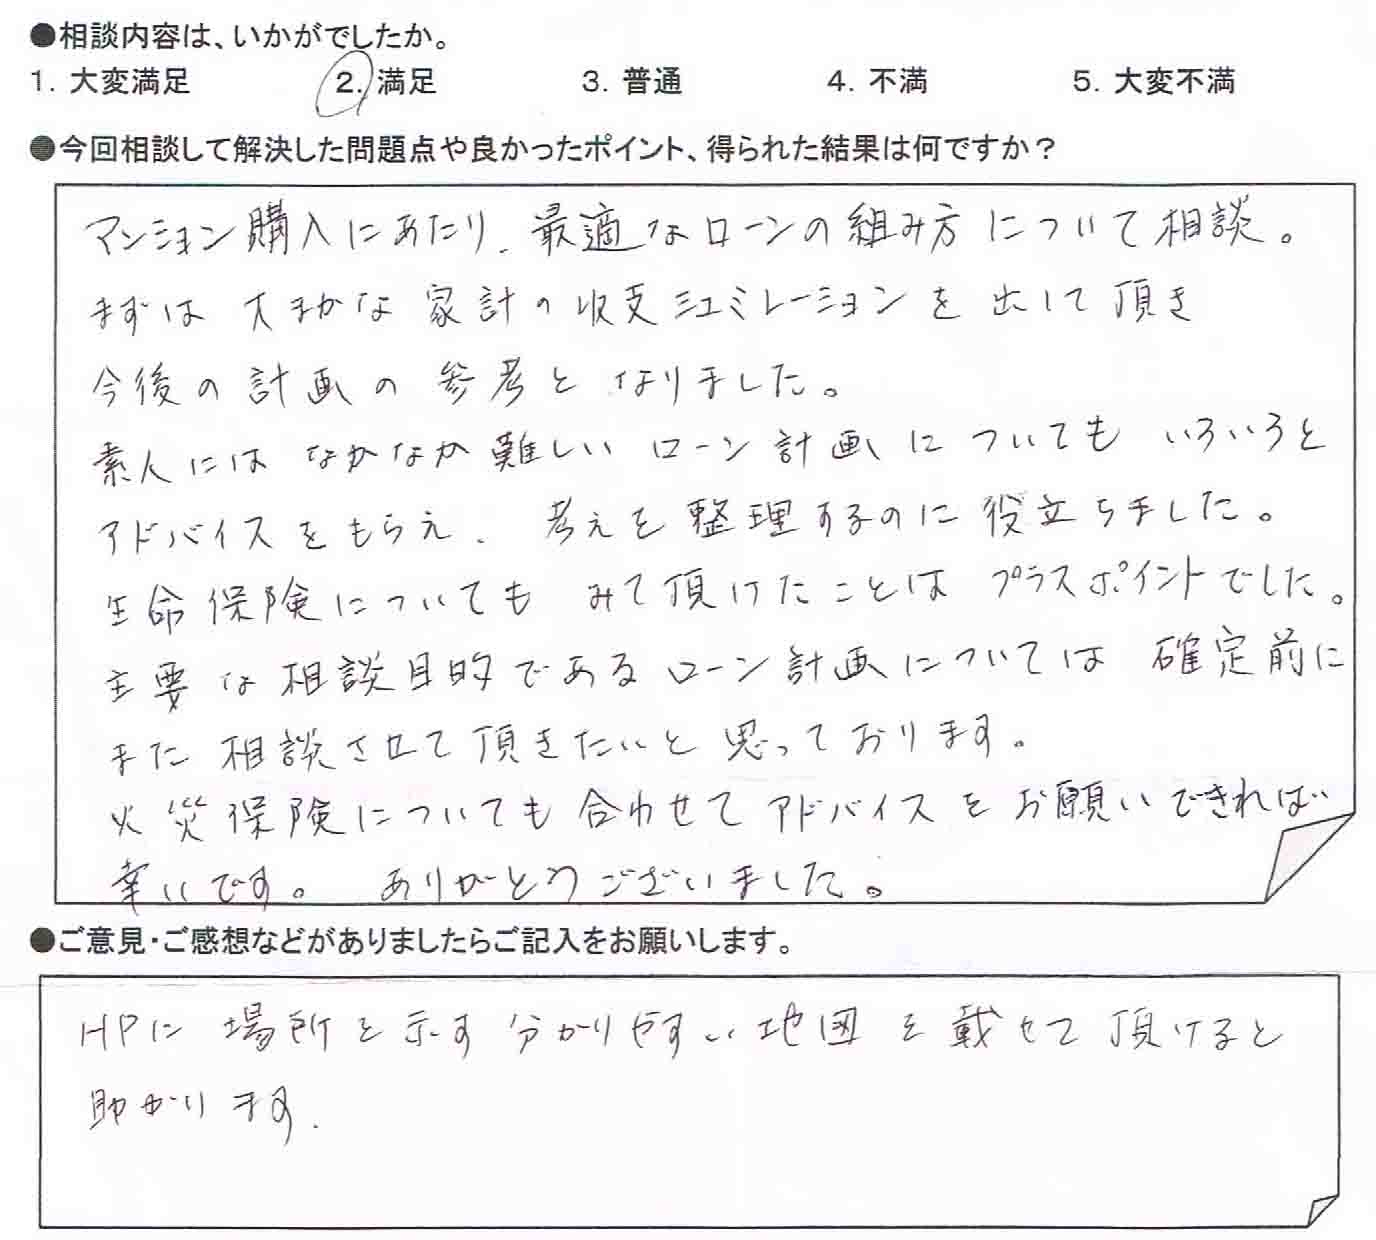 ●相談内容は、いかがでしたか。
1. 大変満足 2. 満足 3. 普通 4. 不満 5. 大変不満
●今回相談して解決した問題点や良かったポイント、得られた結果は何ですか？
マンション購入にあたり、最適なローンの組み方について相談。
まずは大まかな家計の収支シュミレーションを出して頂き
今後の計画の参考となりました。
素人にはなかなか難しいローン計画についてもいろいろと
アドバイスをもらえ、考えを整理するのに役立ちました。
生命保険についてもみて頂けたことはプラスポイントでした。
主要な相談目的であるローン計画については確定前に
また相談させて頂きたいと思っております。
火災保険についても合わせてアドバイスをお願いできれば
幸いです。ありがとうございました。
●ご意見・ご感想などがありましたらご記入をお願いします。
HPに場所を示す分かりやすい地図を載せて頂けると
助かります.